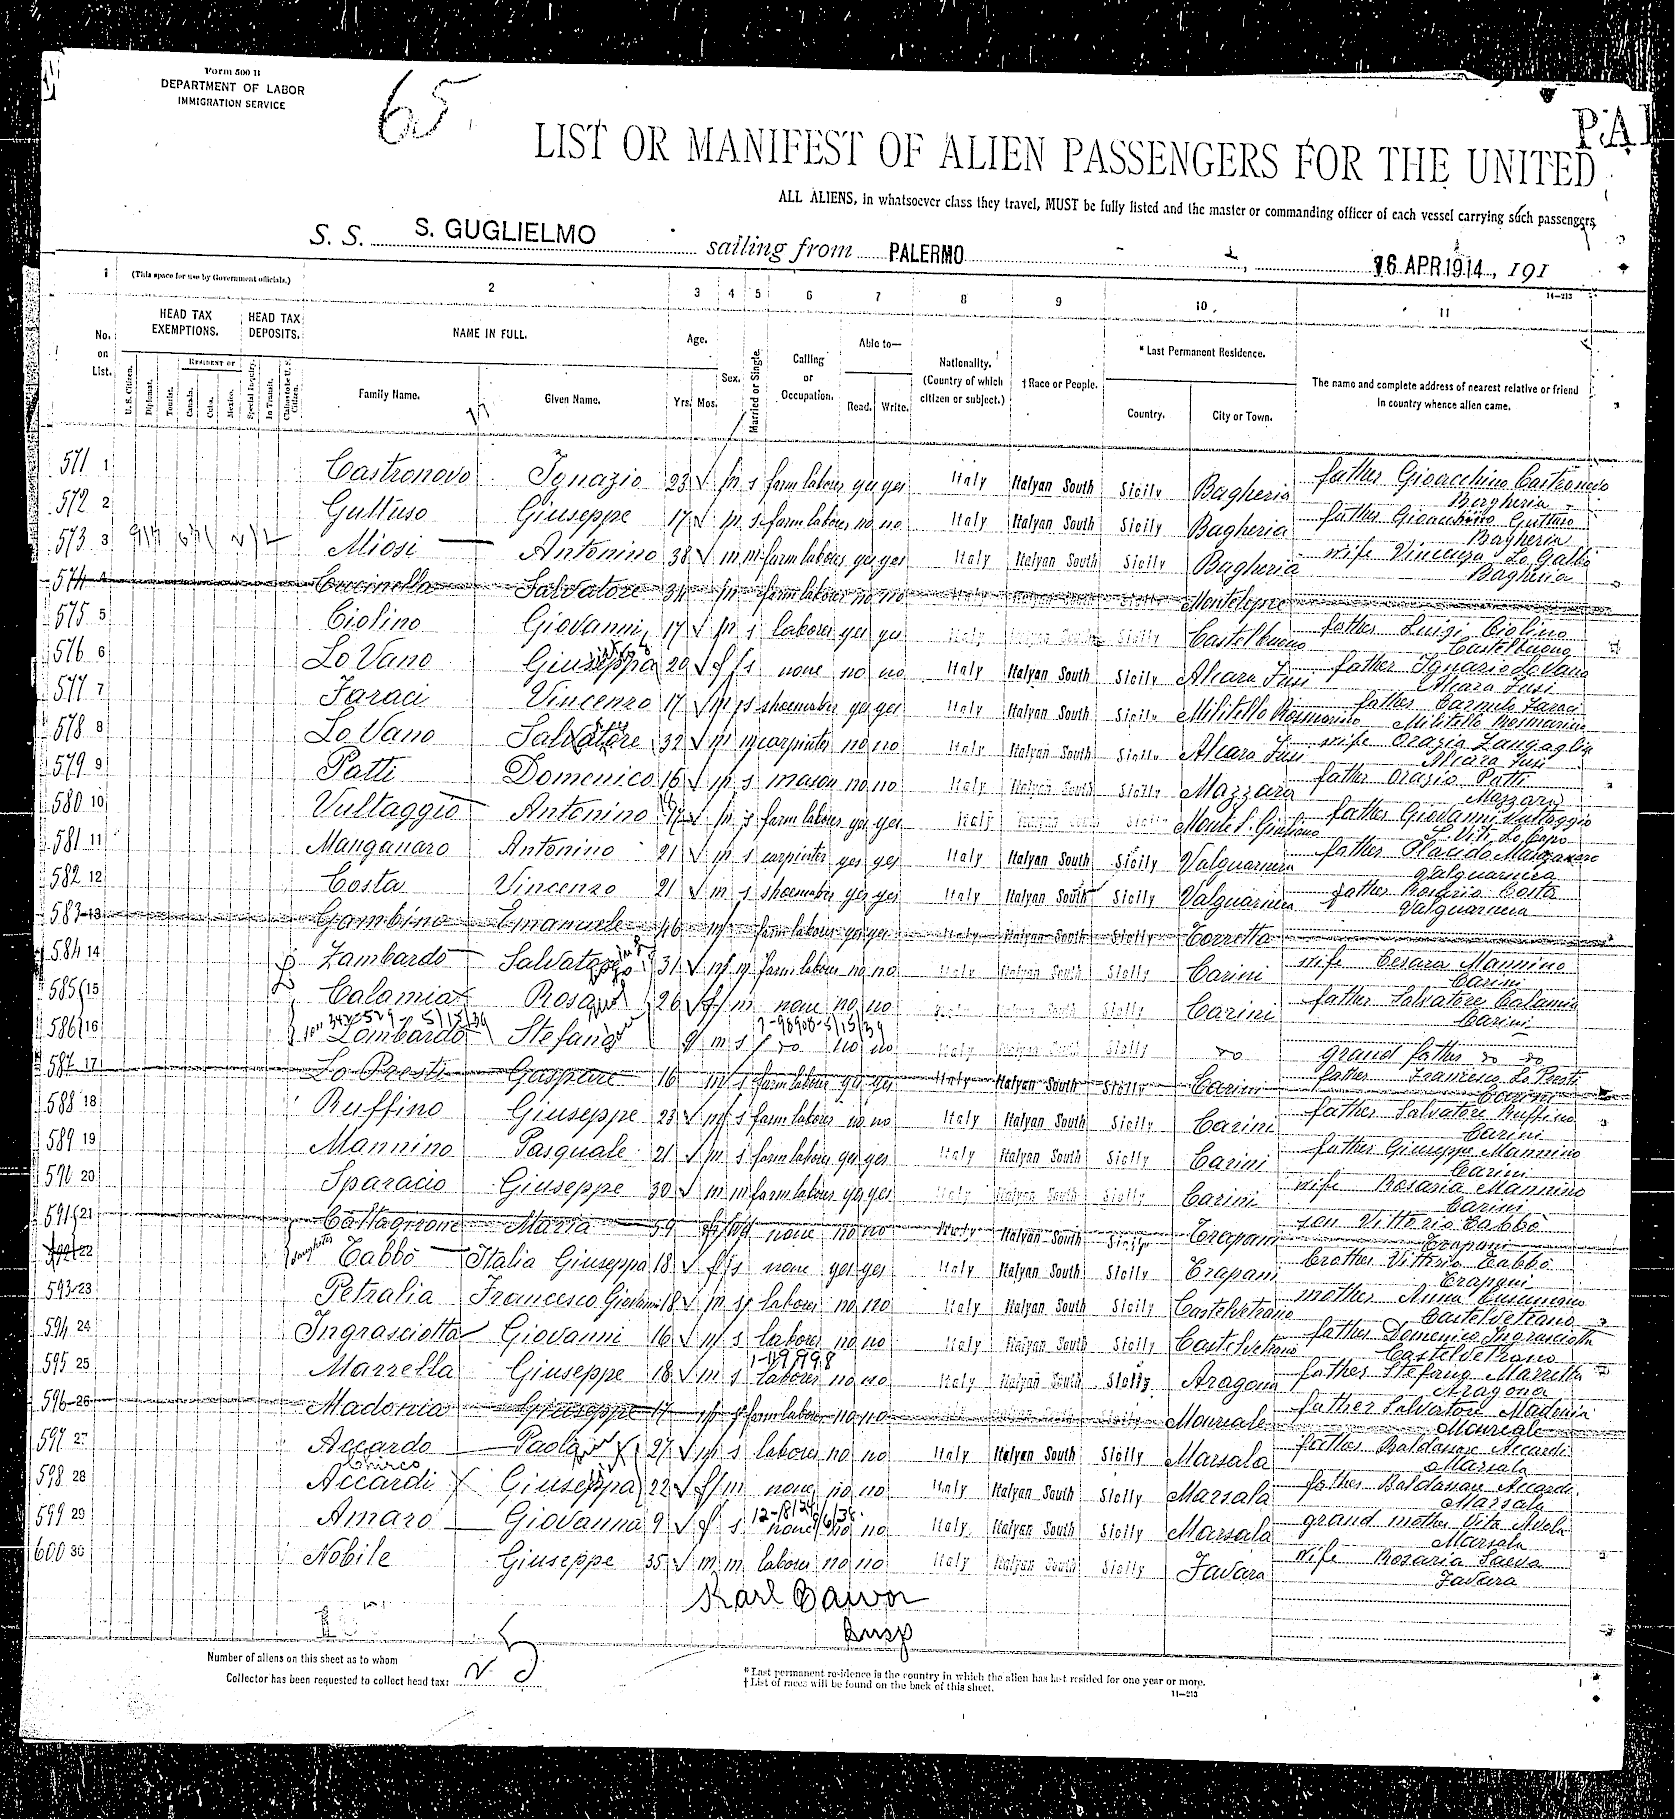 Form 500 B
DEPARTMENT OF LABOR
IMMIGRATION SERVICE
65
PAL
LIST OR MANIFEST OF ALIEN PASSENGERS FOR THE UNITED
ALL ALIENS, in whatsoever class they travel, MUST be fully listed and the master or commanding officer of each vessel carrying such passengers
S. S. S. GUGLIELMO sailing from PALERMO 16 APR 1914, 191
14—213
1 (This space for use by Government officials.) 2 3 4 5 6 7 8 9 10 11
No. on List.
HEAD TAX EXEMPTIONS. HEAD TAX DEPOSITS.
RESIDENT OF
U.S. Citizen. Diplomat. Tourist. Canada. Cuba. Mexico. Special Inquiry. In Transit.
NAME IN FULL. Family Name. Given Name.
Age. Yrs. Mos.
Sex.
Married or Single.
Calling or Occupation.
Able to— Read. Write.
Nationality. (Country of which citizen or subject.)
† Race or People.
* Last Permanent Residence. Country. City or Town.
The name and complete address of nearest relative or friend in country whence alien came.
571 1 Castronovo Ignazio 23 m s farm labour yes yes Italy Italyan South Sicily Bagheria father Gioacchino Castronovo
Bagheria
572 2 Guttuso Giuseppe 17 m s farm labour no no Italy Italyan South Sicily Bagheria father Gioacchino Guttuso
Bagheria
573 3 Miosi Antonino 38 m m farm labour yes yes Italy Italyan South Sicily Bagheria wife Vincenza Lo Gallo
Bagheria
574 4 Cucinella Salvatore 34 m farm labour no no Italy Italyan South Sicily Montelepre
575 5 Ciolino Giovanni 17 m s labourer yes yes Italy Italyan South Sicily Castelbuono father Luigi Ciolino
Castelbuono
576 6 Lo Vano Giuseppa 20 f s none no no Italy Italyan South Sicily Alcara Fusi father Ignazio Lo Vano
Alcara Fusi
577 7 Faraci Vincenzo 17 m s shoemaker yes yes Italy Italyan South Sicily Militello Rosmarino father Carmelo Faraci
Militello Rosmarino
578 8 Lo Vano Salvatore 32 m m carpinter no no Italy Italyan South Sicily Alcara Fusi wife Orazia
Alcara Fusi
579 9 Patti Domenico 16 m s mason no no Italy Italyan South Sicily Mazzara father Orazio Patti
Mazzara
580 10 Vultaggio Antonino m s farm labour yes yes Italy Italyan South Sicily Monte S. Giuliano father Giovanni Vultaggio
S. Vito Lo Capo
581 11 Manganaro Antonino 21 m s carpinter yes yes Italy Italyan South Sicily Valguarnera father Placido Manganaro
Valguarnera
582 12 Costa Vincenzo 21 m s shoemaker yes yes Italy Italyan South Sicily Valguarnera father Rosario Costa
Valguarnera
583 13 Gambino Emanuele 46 m farm labour yes yes Italy Italyan South Sicily Torretta
584 14 Lombardo Salvatore 31 m m farm labour no no Italy Italyan South Sicily Carini wife Cesara Mannino
Carini
585 15 Calamia Rosa 26 f m none no no Italyan South Sicily Carini father Salvatore Calamia
Carini
586 16 Lombardo Stefano 9 m s do no no Italy Italyan South Sicily do grand father do do
587 17 Lo Presti Gaspare 16 m s farm labour yes yes Italy Italyan South Sicily Carini father Francesco Lo Presti
Carini
588 18 Ruffino Giuseppe 23 m s farm labour no no Italy Italyan South Sicily Carini father Salvatore Ruffino
Carini
589 19 Mannino Pasquale 21 m s farm labour yes yes Italy Italyan South Sicily Carini father Giuseppe Mannino
Carini
590 20 Sparacio Giuseppe 30 m m farm labour yes yes Italy Italyan South Sicily Carini wife Rosaria Mannino
Carini
591 21 Caltagirone Maria 59 f none no no Italy Italyan South Sicily Trapani son Vittorio Tabbò
Trapani
592 22 daughter Tabbò Italia Giuseppa 18 f s none yes yes Italy Italyan South Sicily Trapani brother Vittorio Tabbò
Trapani
593 23 Petralia Francesco Giovanni 18 m s labour no no Italy Italyan South Sicily Castelvetrano mother Anna Cusumano
Castelvetrano
594 24 Ingrasciotta Giovanni 16 m s labourer no no Italy Italyan South Sicily Castelvetrano father Domenico Ingrasciotta
Castelvetrano
595 25 Marzella Giuseppe 18 m s labourer no no Italy Italyan South Sicily Aragona father Stefano Marzella
Aragona
596 26 Madonia Giuseppe 17 m s farm labour no no Monreale father Salvatore Madonia
Monreale
597 27 Accardo Paolo 27 m s labourer no no Italy Italyan South Sicily Marsala father Baldassare Accardi
Marsala
598 28 Chirco Accardi Giuseppa 22 f m none no no Italy Italyan South Sicily Marsala father Baldassare Accardi
Marsala
12-18/24
599 29 Amaro Giovanna 9 f s none no no Italy Italyan South Sicily Marsala grand mother Vita
Marsala
600 30 Nobile Giuseppe 35 m m labourer no no Italy Italyan South Sicily Favara wife Rosaria
Favara
Karl
Insp
Number of aliens on this sheet as to whom
Collector has been requested to collect head tax:
* Last permanent residence is the country in which the alien has last resided for one year or more.
† List of races will be found on the back of this sheet.
11—213